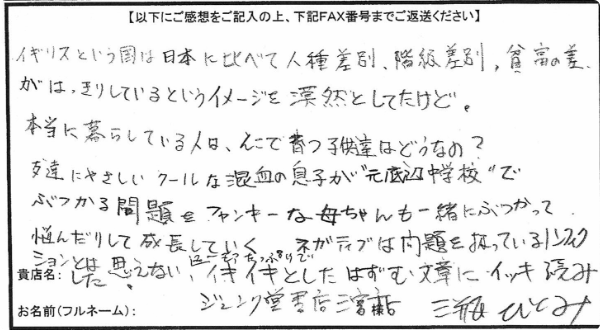 【以下にご感想をご記入の上、下記FAX番号までご返送ください】
イギリスという国は日本に比べて人種差別、階級差別、貧富の差
がはっきりしているというイメージを漠然としてたけど。
本当に暮らしている人は、そこで育つ子供達はどうなの?
友達にやさしいクールな混血の息子が"元底辺中学校"で
ぶつかる問題をファンキーな母ちゃんも一緒にぶつかって
悩んだりして成長していく ネガティブな問題を扱っているノンフィク
ションとは思えない、ユーモアたっぷりで
イキイキとしたはずむ文章にイッキ読み
した。
貴店名:
お名前(フルネーム): ジュンク堂書店三宮店 三瓶ひとみ